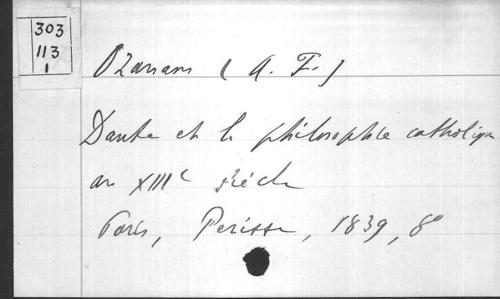 303
113
1
Ozanam (A. F.)
Dante et la philosophie catholique
au XIIIe siècle
Paris, Perisse, 1839, 8°